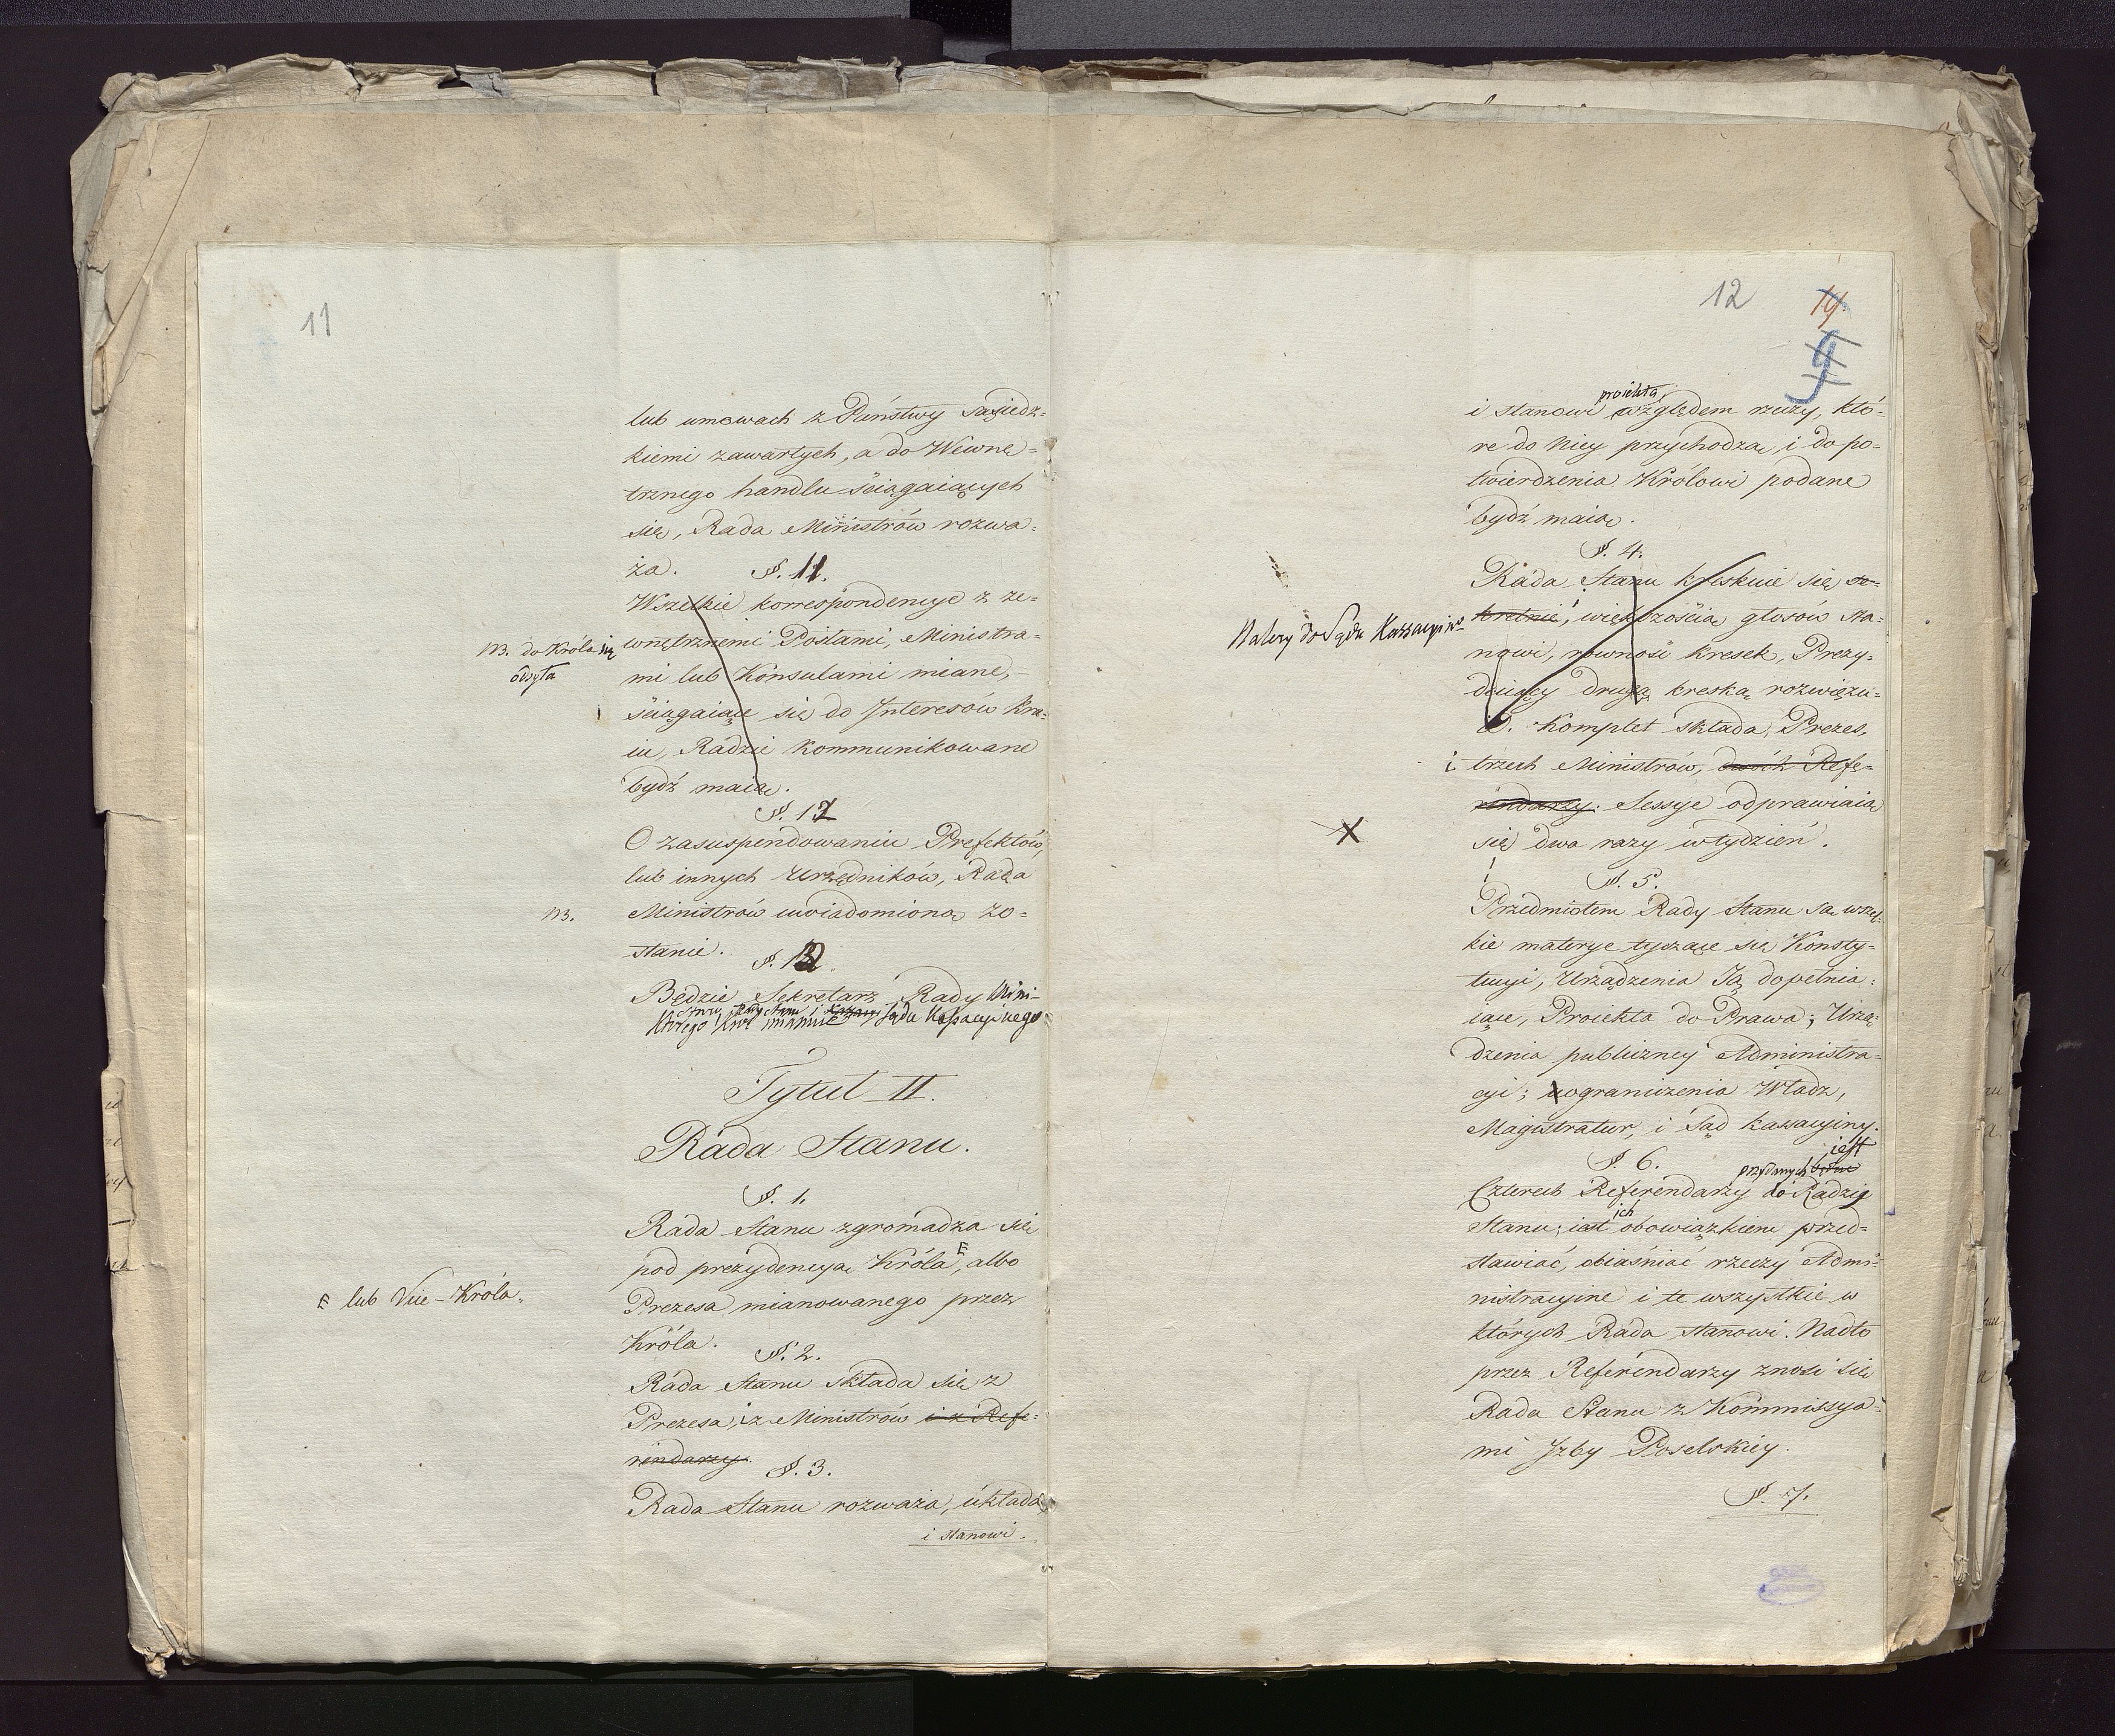 11
lub umowach z Państwy sąsiedz-
kiemi zawartych, a do Wewnę-
trznego handlu ściągaiących
się, Rada Ministrów rozwa-
ża. §. 11.
Wszelkie korrespondencye z ze-
wnętrznemi Posłami, Ministra-
mi lub Konsulami miane,
ściągaiące się do Interesów Kra-
iu, Radzie kommunikowane
bydź maią.
NB. do Króla się
odsyła
§. 12
O zasuspendowaniu Prefektów,
lub innych Urzędników, Rada
NB. Ministrów uwiadomioną zo-
stanie. §.
Będzie Sekretarz Rady Mini-
strów, Rady Stanu i Sądu Kassacyinego
którego Król mianuie
Tytuł II.
Rada Stanu.
§. 1.
Rada Stanu zgromadza się
pod prezydencyą Króla, albo
lub Vice-Króla
Prezesa mianowanego przez
Króla. §. 2.
Rada Stanu składa się z
Prezesa, i z Ministrów i z Refe-
rendarzy. §. 3.
Rada Stanu rozważa, układa,
i stanowi
12 19
9
proiekta,
i stanowi względem rzeczy, któ-
re do niey przychodzą, i do po-
twierdzenia Królowi podane
bydź maią.
§. 4.
Rada Stanu kreskuie się se-
kretnie, większością głosów sta-
Należy do Sądu Kassacyino
nowi, równość kresek, Prezy-
duiący drugą kreską rozwięzu-
ie. Komplet składa, Prezes,
i trzech Ministrów, dwóch Refe-
rendarzy. Sessye odprawiaią
X
się dwa razy w tydzień.
§. 5.
Przedmiotem Rady Stanu są wszel-
kie materye tyczące się Konsty-
tucyi, Urządzenia Ją dopełnia-
iące, Proiekta do Prawa; Urzą-
dzenia publiczney Administra-
cyi; ograniczenia Władz,
Magistratur, i Sąd kassacyiny.
§. 6.
przydanych będzie iest
Czterech Referendarzy do Radzie
Stanu; iest ich obowiązkiem przed-
stawiać, obiaśniać rzeczy Admi-
nistracyine i te wszystkie w
których Rada stanowi. Nadto
przez Referendarzy znosi się
Rada Stanu z Kommissya-
mi Izby Poselskiey.
§. 7.